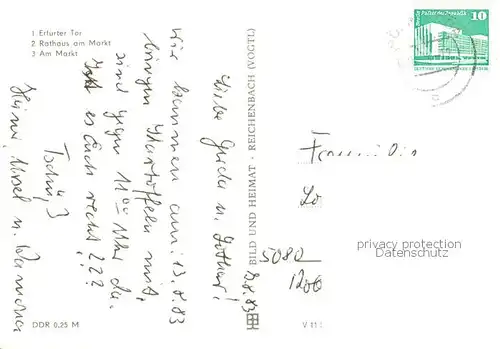 1 Erfurter Tor
2 Rathaus am Markt
3 Am Markt
Liebe Gerda u. Lothar!
Wir kommen am 13.8.83
bringen Kartoffeln mit,
sind gegen 11⁰⁰ Uhr da.
Ist es Euch recht???
Tschüß
Heiner, Ursel u. Ramona
DDR 0,25 M
BILD UND HEIMAT · REICHENBACH (VOGTL)
9.8.83
V 11
10
Familie
5080
privacy protection
Datenschutz